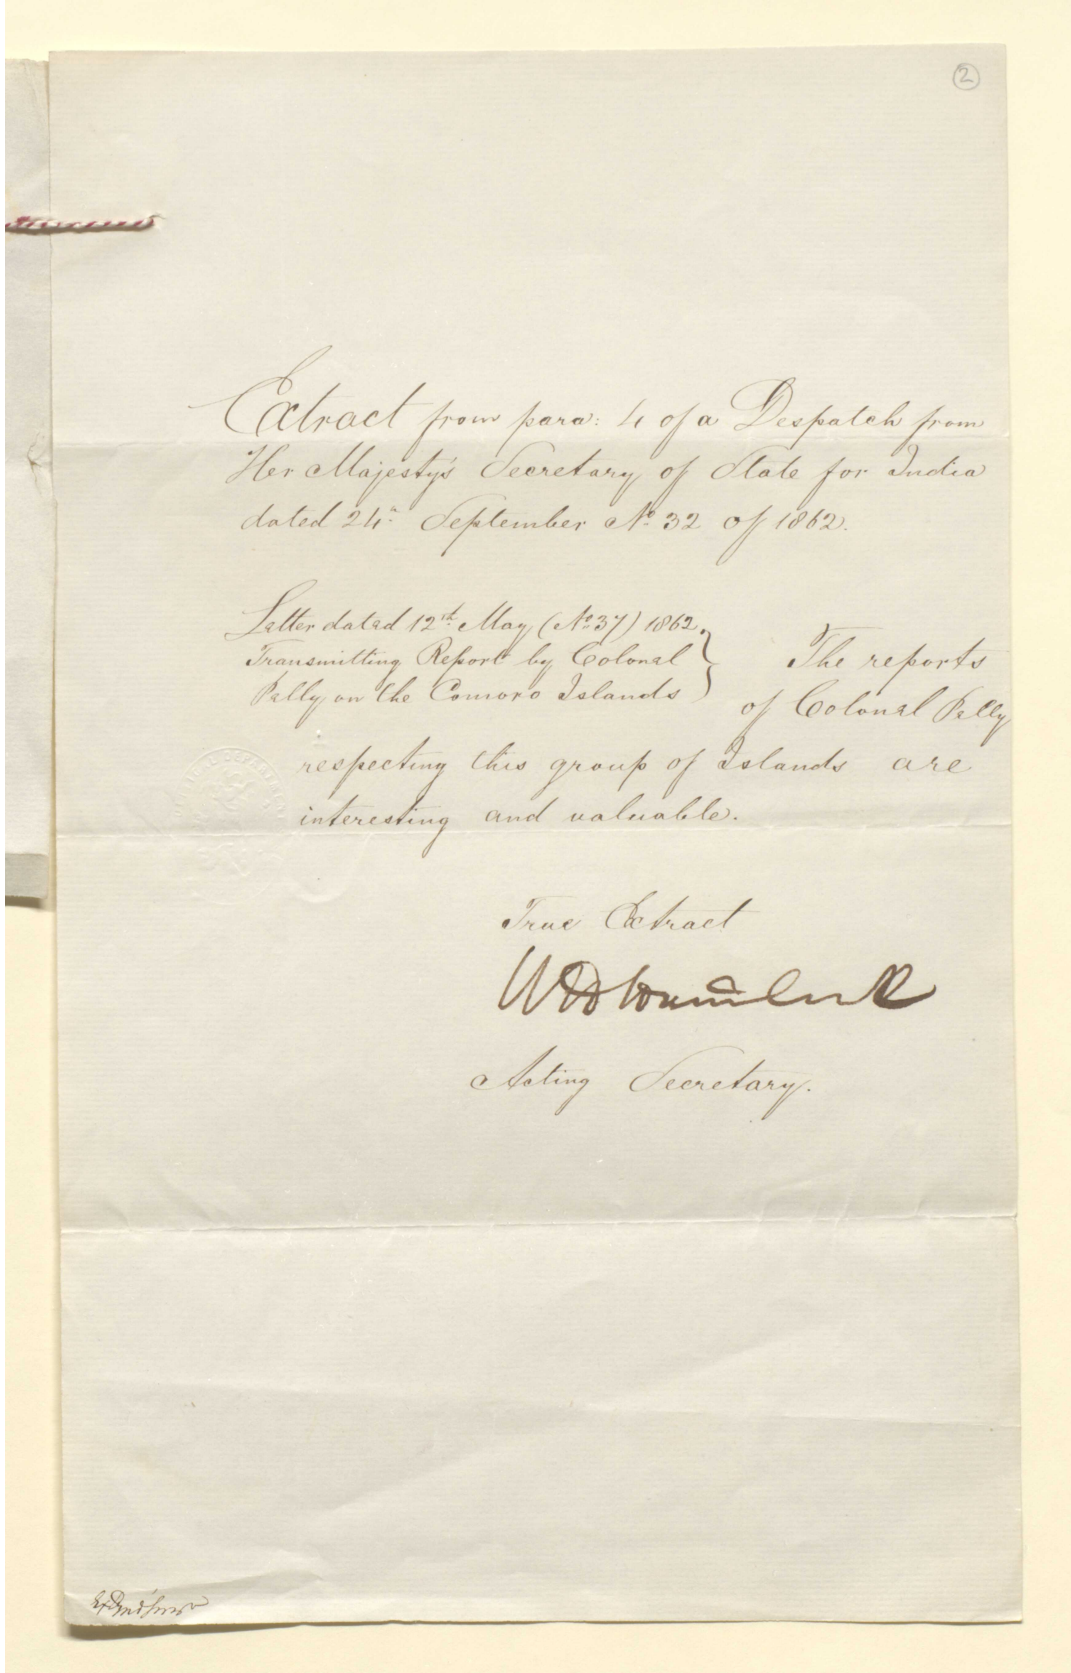 2
Extract from para: 4 of a Despatch from
Her Majesty's Secretary of State for India
dated 24th September No 32 of 1862.
Letter dated 12th May (No 37) 1862,
Transmitting Report by Colonel
Pelly on the Comoro Islands
The reports
of Colonel Pelly
respecting this group of Islands are
interesting and valuable.
True Extract
Acting Secretary.